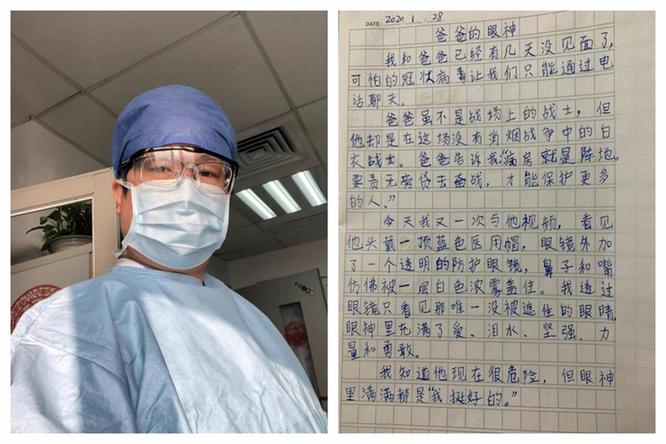 DATE: 2020.1.28
爸爸的眼神
我和爸爸已经有几天没见面了,
可怕的冠状病毒让我们只能通过电
话聊天。
爸爸虽不是战场上的战士,但
他却是在这场没有肖烟战争中的白
衣战士。爸爸告诉我“病房就是阵地。
要责无旁贷去奋战,才能保护更多
的人。”
今天我又一次与他视频,看见
他头戴一顶蓝色医用帽,眼镜外加
了一个透明的防护眼镜,鼻子和嘴
仿佛被一层白色浓雾盖住。我透过
眼镜只看见那唯一没被遮住的眼睛,
眼神里充满了爱、泪水、坚强、力
量和勇敢。
我知道他现在很危险,但眼神
里满满都是“我挺好的。”